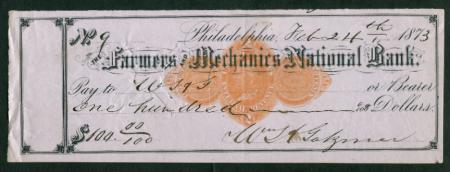 Philadelphia, Feb 24th 1873
No 9
THE Farmers AND Mechanics National Bank.
Pay to or Bearer
One hundred Dollars.
$100.00/100
Wm H